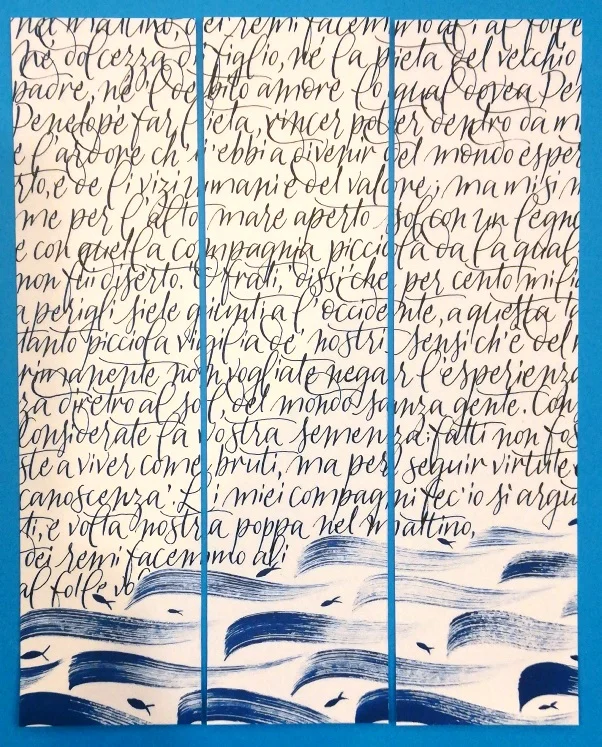 nel mattino, dei remi facemmo ali al folle
né dolcezza di figlio, né la pieta del vecchio
padre, né 'l debito amore lo qual dovea Pen
Penelopè far lieta, vincer potter dentro da m
e l'ardore ch'i' ebbi a divenir del mondo esper
rto, e de li vizi umani e del valore; ma misi m
me per l'alto mare aperto sol con un legno
e con quella compagnia picciola da la qual
non fui diserto. "O frati", dissi, che per cento milia
a perigli siete giunti a l'occidente, a questa ta
tanto picciola vigilia de' nostri sensi ch'è del r
rimanente non vogliate negar l'esperienza
za diretro al sol, del mondo sanza gente. Cons
Considerate la vostra semenza: fatti non fos
ste a viver come bruti, ma per seguir virtute e
canoscenza". Li miei compagni fec'io sì argu
ti, e volta nostra poppa nel mattino,
dei remi facemmo ali
al folle vo